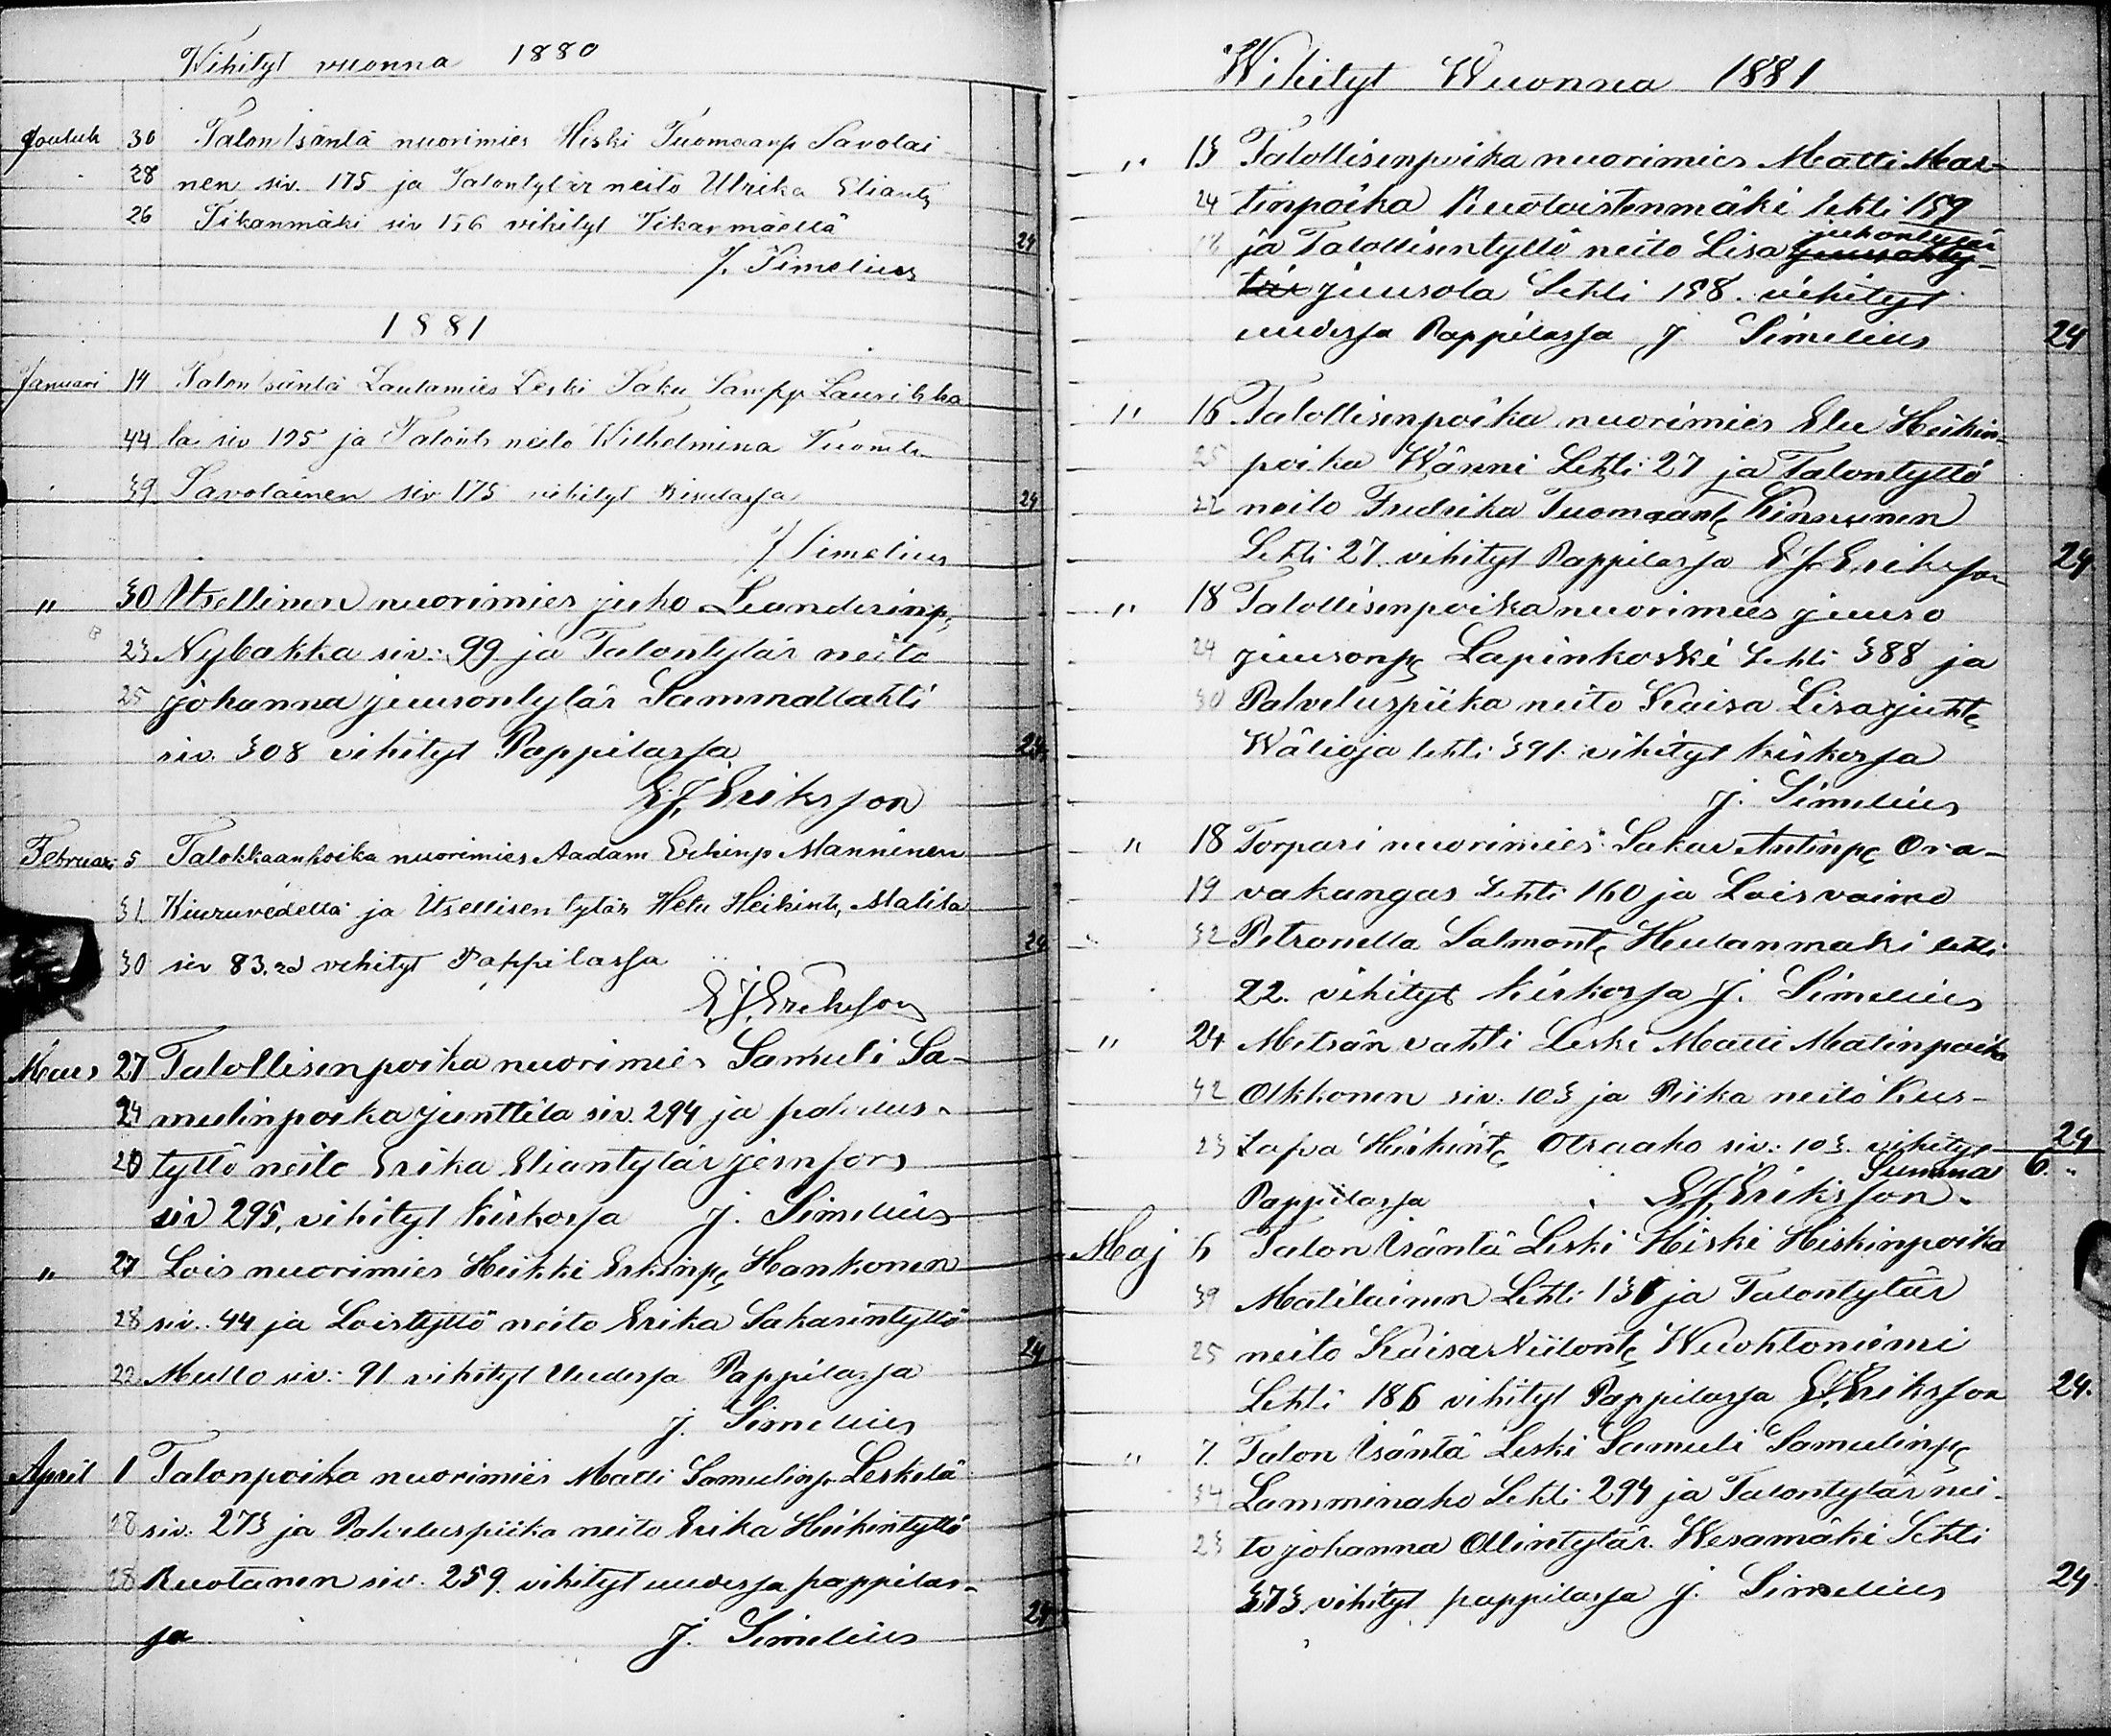 Wihityt vuonna 1880
Jouluk 30 Talon Isäntä nuorimies Hiski Tuomaanp Savolai
28 nen siv. 175 ja Talontytär neito Ulrika Eliantr
26 Tikanmäki siv 156 vihityt Tikanmäellä 24
J. Simelius
1881
Januari 14 Talon Isäntä Lautamies Leski Saku Samp Laurikka
44 la siv 125 ja Talont neito Wilhelmina Tuomtr
39 Savolainen siv 175 vihityt 24
J Simelius
" 30 Itsellinen nuorimies juho Leanderinp,
23 Nybakka siv: 99 ja Talontytär neito
25 johanna juusontytär Sammallahti
siv. 308 vihityt Pappilassa 24
E.J. Eriksson
Februari 5 Talokkaanpoika nuorimies Aadam Erkinp Manninen
31 Kiuruvedellä ja Itsellisen tytär Helu Heikint, Malila
30 siv 83. vihityt Pappilassa 24
E.J. Eriksson
Mars 27 Talollisenpoika nuorimies Samuli Sa-
24 mulinpoika junttila siv. 294 ja palvelus-
20 tyttö neito Erika Eliantytär jernfors
siv 295, vihityt kirkossa J. Simelius
" 27 Lois nuorimies Heikki Erkinp, Hankonen
28 siv. 44 ja Loistyttö neito Erika Sakarintyttö
22 Mullo siv: 91 vihityt Uudessa Pappilassa 24
J. Simelius
April 1 Talonpoika nuorimies Matti Samulinp. Leskelä
18 siv: 273 ja Palveluspiika neito Erika Heikintyttö
28 Ruotanen siv. 259. vihityt uudessa pappilas-
sa J. Simelius 24
Wihityt Wuonna 1881
" 13 Talollisenpoika nuorimies Matti Mar-
24 tinpoika Ruotoistenmäki lehti 159
juhontytär
18 ja Talollisentyttö neito Lisa juusonty-
tär juusola Lehti 158. vihityt
uudessa Pappilassa J. Simelius 24
" 16 Talollisenpoika nuorimies Elu Heikin-
25 poika Wänni Lehti: 27 ja Talontyttö
22 neito Fredrika Tuomaant, Kinnunen
Lehti: 27. vihityt Pappilassa E J. Eriksson 24
" 18 Talollisenpoika nuorimies juuso
24 juusonp, Lapinkoski Lehti 388 ja
30 Palveluspiika neito Kaisa Lisa juht,
Wälioja lehti: 391. vihityt kirkossa
J. Simelius
" 18 Torpari nuorimies Sakar Antinp, Ora-
19 vakangas Lehti 160 ja Lois vaimo
32 Petronella Salmont, Heulanmäki lehti
22. vihityt kirkossa J. Simelius
" 24 Metsän vahti Leski Matti Matinpoika
42 Olkkonen siv: 103 ja Piika neito Kus-
23 tafva Heikint, Otraaho siv: 103. vihityt 24
Summa 6. "
Pappilassa E.J. Eriksson.
Maj 6 Talon Isäntä Leski Hiski Hiskinpoika
39 Matilainen Lehti 131 ja Talontytär
25 neito Kaisa Niilont, Wuohtoniemi
Lehti 186 vihityt Pappilassa E.J. Eriksson 24.
" 7. Talon Isäntä Leski Samuli Samulinp,
34 Lamminaho Lehti 294 ja Talontytär nei-
23 to johanna Ollintytär. Wesamäki Lehti
373. vihityt pappilassa J. Simelius 24